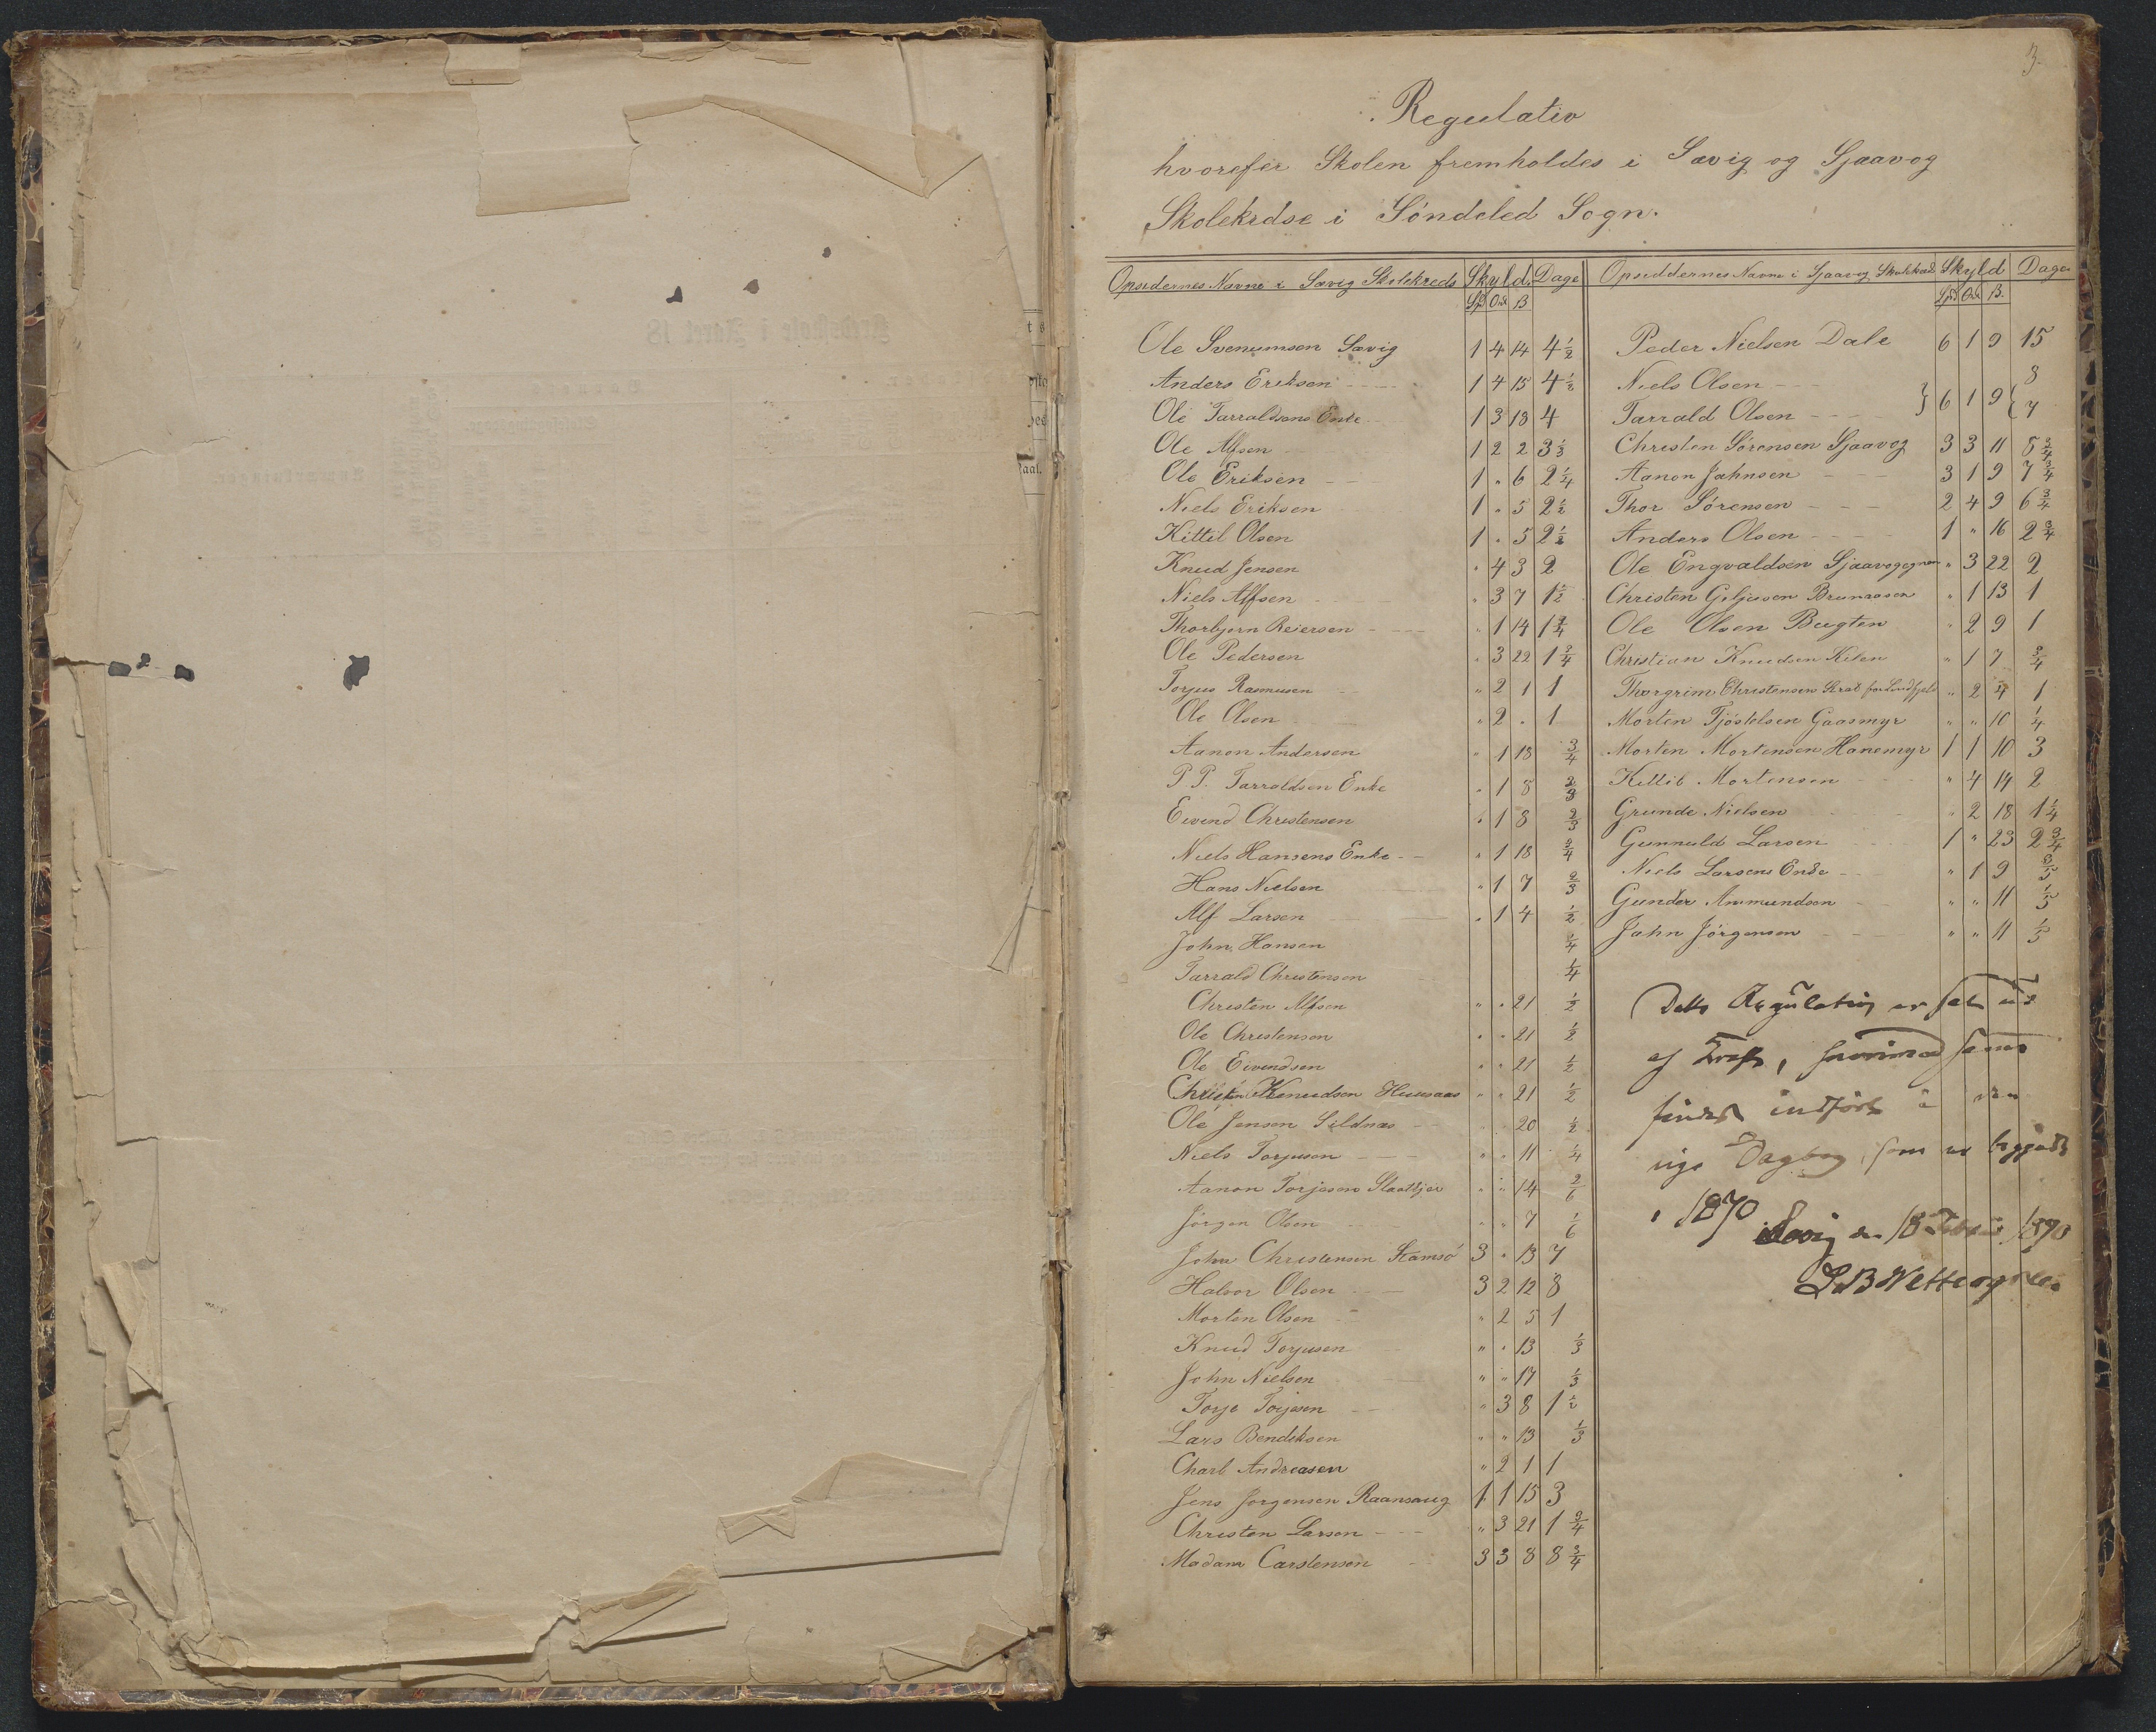 3.
Regulativ
hvorefer Skolen fremholdes i Savig og Sjaavog
Skolekrdse i Söndeled Sogn.
Opsidernes Navne i Savig Skolekreds Skyld. Dage
Spd Ort ß
Ole Svenumsen Savig 1 4 14 4 1/2
Anders Eriksen 1 4 15 4 1/2
Ole Tarraldsens Enke 1 3 18 4
Ole Alfsen 1 2 2 3 1/3
Ole Eriksen 1 " 6 2 1/4
Niels Eriksen 1 " 5 2 1/2
Kittil Olsen 1 " 5 2 1/2
Knud Jensen " 4 3 2
Niels Alfsen " 3 7 1 1/2
Thorbjorn Reiersen " 1 14 1 3/4
Ole Pedersen " 3 22 1 3/4
Torjus Rasmusen " 2 1 1
Ole Olsen " 2 " 1
Aanon Andersen " 1 18 3/4
P P. Tarraldsen Enke " 1 8 2/3
Eivend Christensen " 1 8 2/3
Niels Hansens Enke " 1 18 3/4
Hans Nielsen " 1 7 2/3
Alf Larsen " 1 4 1/2
John Hansen 1/4
Tarrald Christensen 1/4
Christen Alfsen " " 21 1/2
Ole Christensen " " 21 1/2
Ole Eivendsen " " 21 1/2
Christen Knudsen Huusaas " " 21 1/2
Ole Jensen Sildnæs " " 20 1/2
Niels Torjusen " " 11 1/4
Aanon Torjesen Slaatkjær " " 14 2/6
Jörgen Olsen " " 7 1/6
John Christensen Stamsö 3 " 13 7
Halvor Olsen 3 2 12 8
Morten Olsen " 2 5 1
Knud Torjusen " " 13 1/3
John Nielsen " " 17 1/3
Torje Torjesen " 3 8 1 1/2
Lars Bendiksen " " 13 1/3
Charl Andreasen " 2 1 1
Jens Jorgensen Raansaug 1 1 15 3
Christen Larsen " 3 21 1 3/4
Madam Carstensen 3 3 8 8 3/4
Opsiddernes Navne i Sjaavog Skolekreds Skyld Dage
Spd Ort ß.
Peder Nielsen Dale 6 1 9 15
Niels Olsen 8
Tarrald Olsen } 6 1 9 { 7
Christen Sörensen Sjaavog 3 3 11 8 3/4
Aanon Jahnsen 3 1 9 7 3/4
Thor Sörensen 2 4 9 6 3/4
Anders Olsen 1 " 16 2 3/4
Ole Engvaldsen " 3 22 2
Christen Geljusen " 1 13 1
Ole Olsen Bugten " 2 9 1
Christian Knudsen Kilen " 1 7 3/4
Thorgrim Christensen " 2 4 1
Morten Tjöstelsen Gaasmyr " " 10 1/4
Morten Mortensen Hanemyr 1 1 10 3
Kittil Mortensen " 4 14 2
Grunde Nielsen " 2 18 1 1/4
Gunnuld Larsen 1 " 23 2 3/4
Niels Larsens Enke " 1 9 3/5
Gunder Ammundsen " " 11 1/5
Jahn Jörgensen " " 11 1/5
Dette Regulativ er sat ud
af Kraft,
findes indført i
Dagbog, som er
1870
Savig den 18 1870